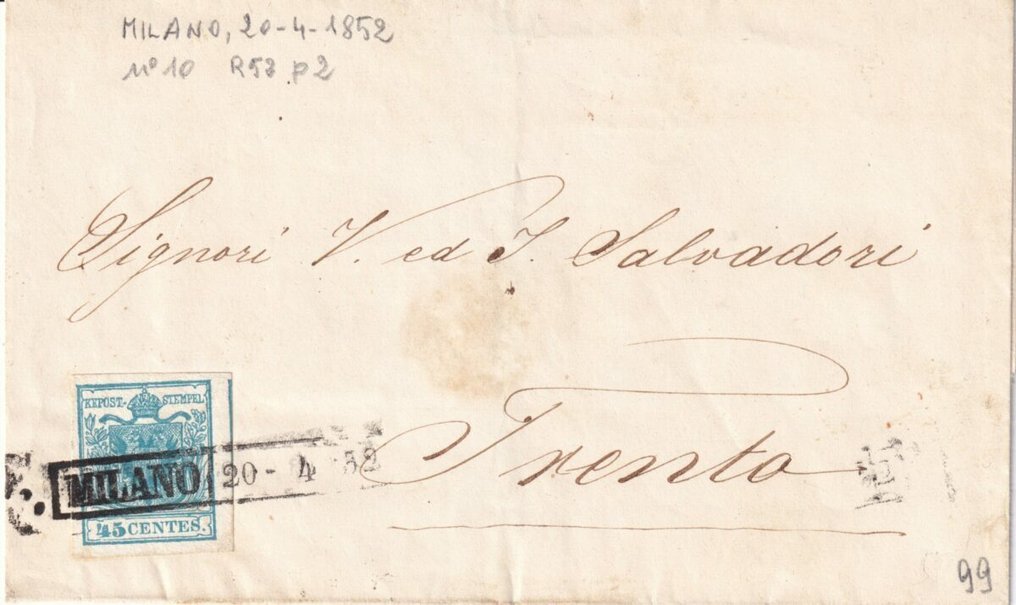 MILANO, 20-4-1852
nº 10 R53 p2
Signori V. ed I. Salvadori
Trento
KEPOST-STEMPEL
MILANO 20 - 4 52
45 CENTES.
99